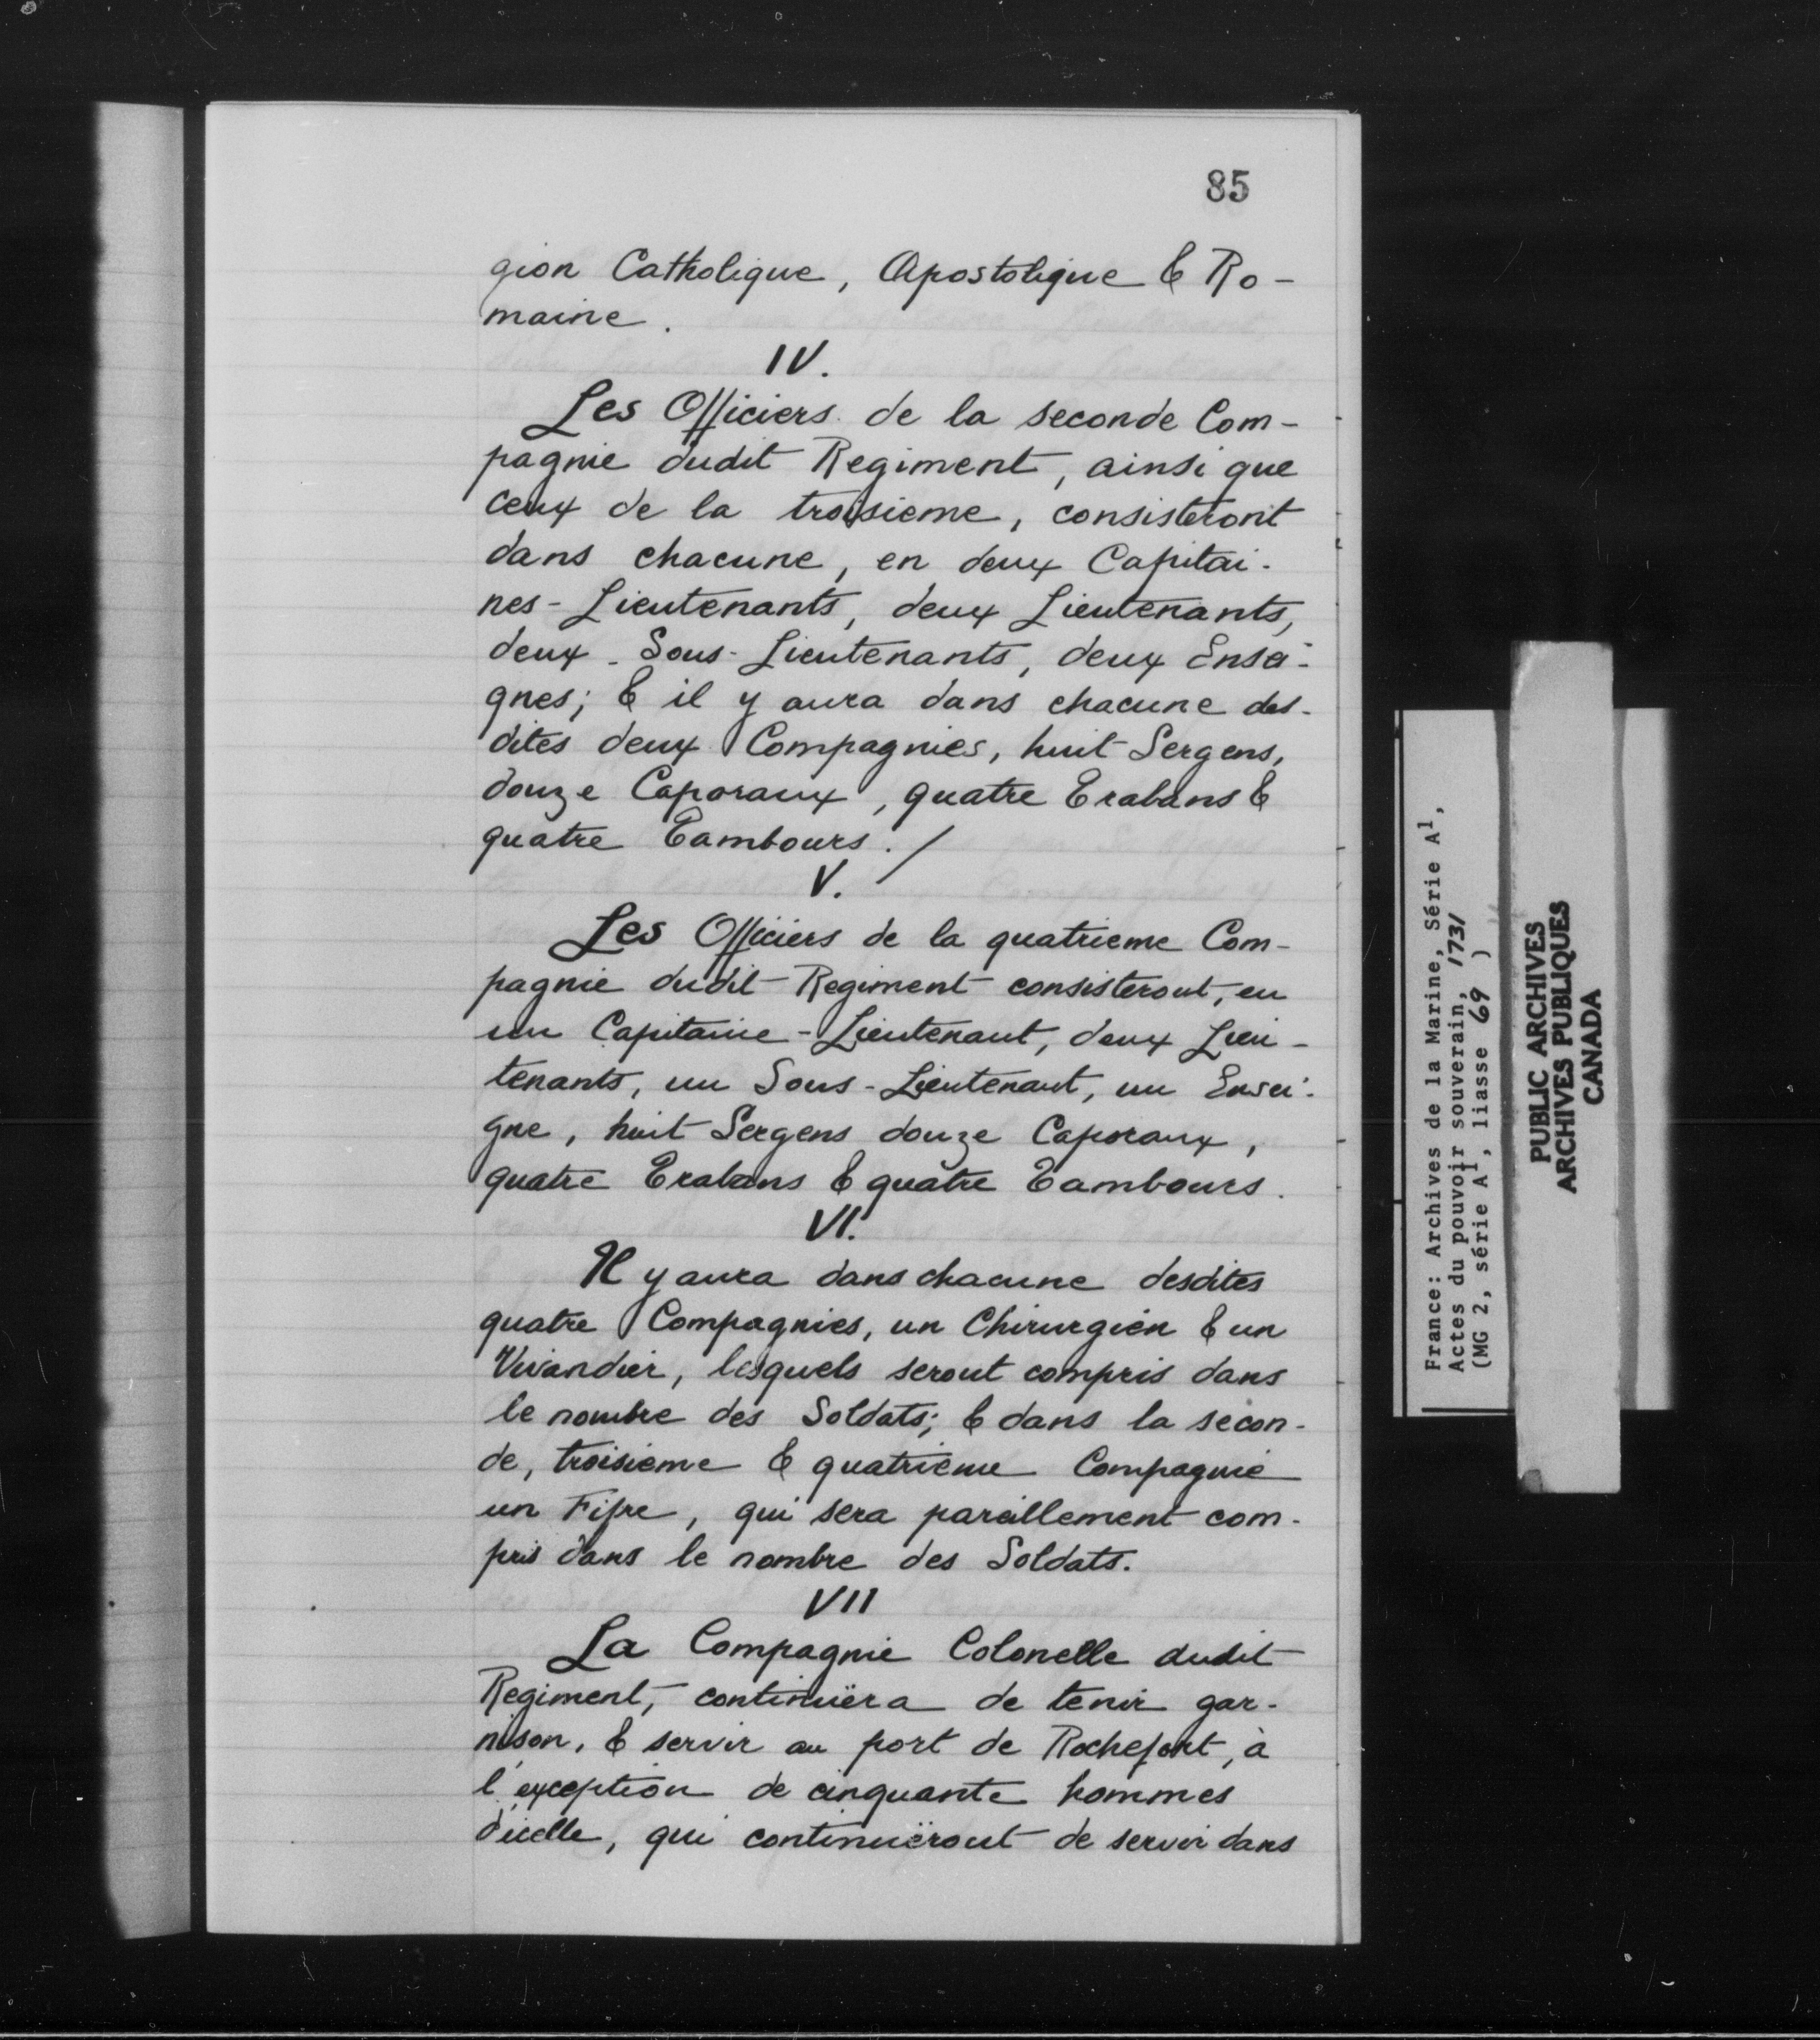 85
gion Catholique, Apostolique & Ro-
maine.
IV.
Les Officiers de la seconde Com-
pagnie dudit Regiment, ainsi que
ceux de la troisieme, consisteront
dans chacune, en deux Capitai-
nes-Lieutenants, deux Lieutenants,
deux Sous-Lieutenants, deux Ensei-
gnes; & il y aura dans chacune des-
dites deux Compagnies, huit Sergens,
douze Caporaux, quatre Trabans &
quatre Tambours./
V.
Les Officiers de la quatrieme Com-
pagnie dudit Regiment consisteront, en
un Capitaine-Lieutenant, deux Lieu-
tenants, un Sous-Lieutenant, un Ensei-
gne, huit Sergens douze Caporaux,
quatre Trabans & quatre Tambours.
VI.
Il y aura dans chacune desdites
quatre Compagnies, un Chirurgien & un
Vivandier, lesquels seront compris dans
le nombre des Soldats; & dans la secon-
de, troisieme & quatrieme Compagnie
un Fifre, qui sera pareillement com-
pris dans le nombre des Soldats.
VII
La Compagnie Colonelle dudit
Regiment, continuëra de tenir gar-
nison, & servir au port de Rochefort, à
l'exception de cinquante hommes
d'icelle, qui continuëront de servir dans
France: Archives de la Marine, Série A1,
Actes du pouvoir souverain, 1731
(MG 2, série A1, liasse 69 )
PUBLIC ARCHIVES
ARCHIVES PUBLIQUES
CANADA